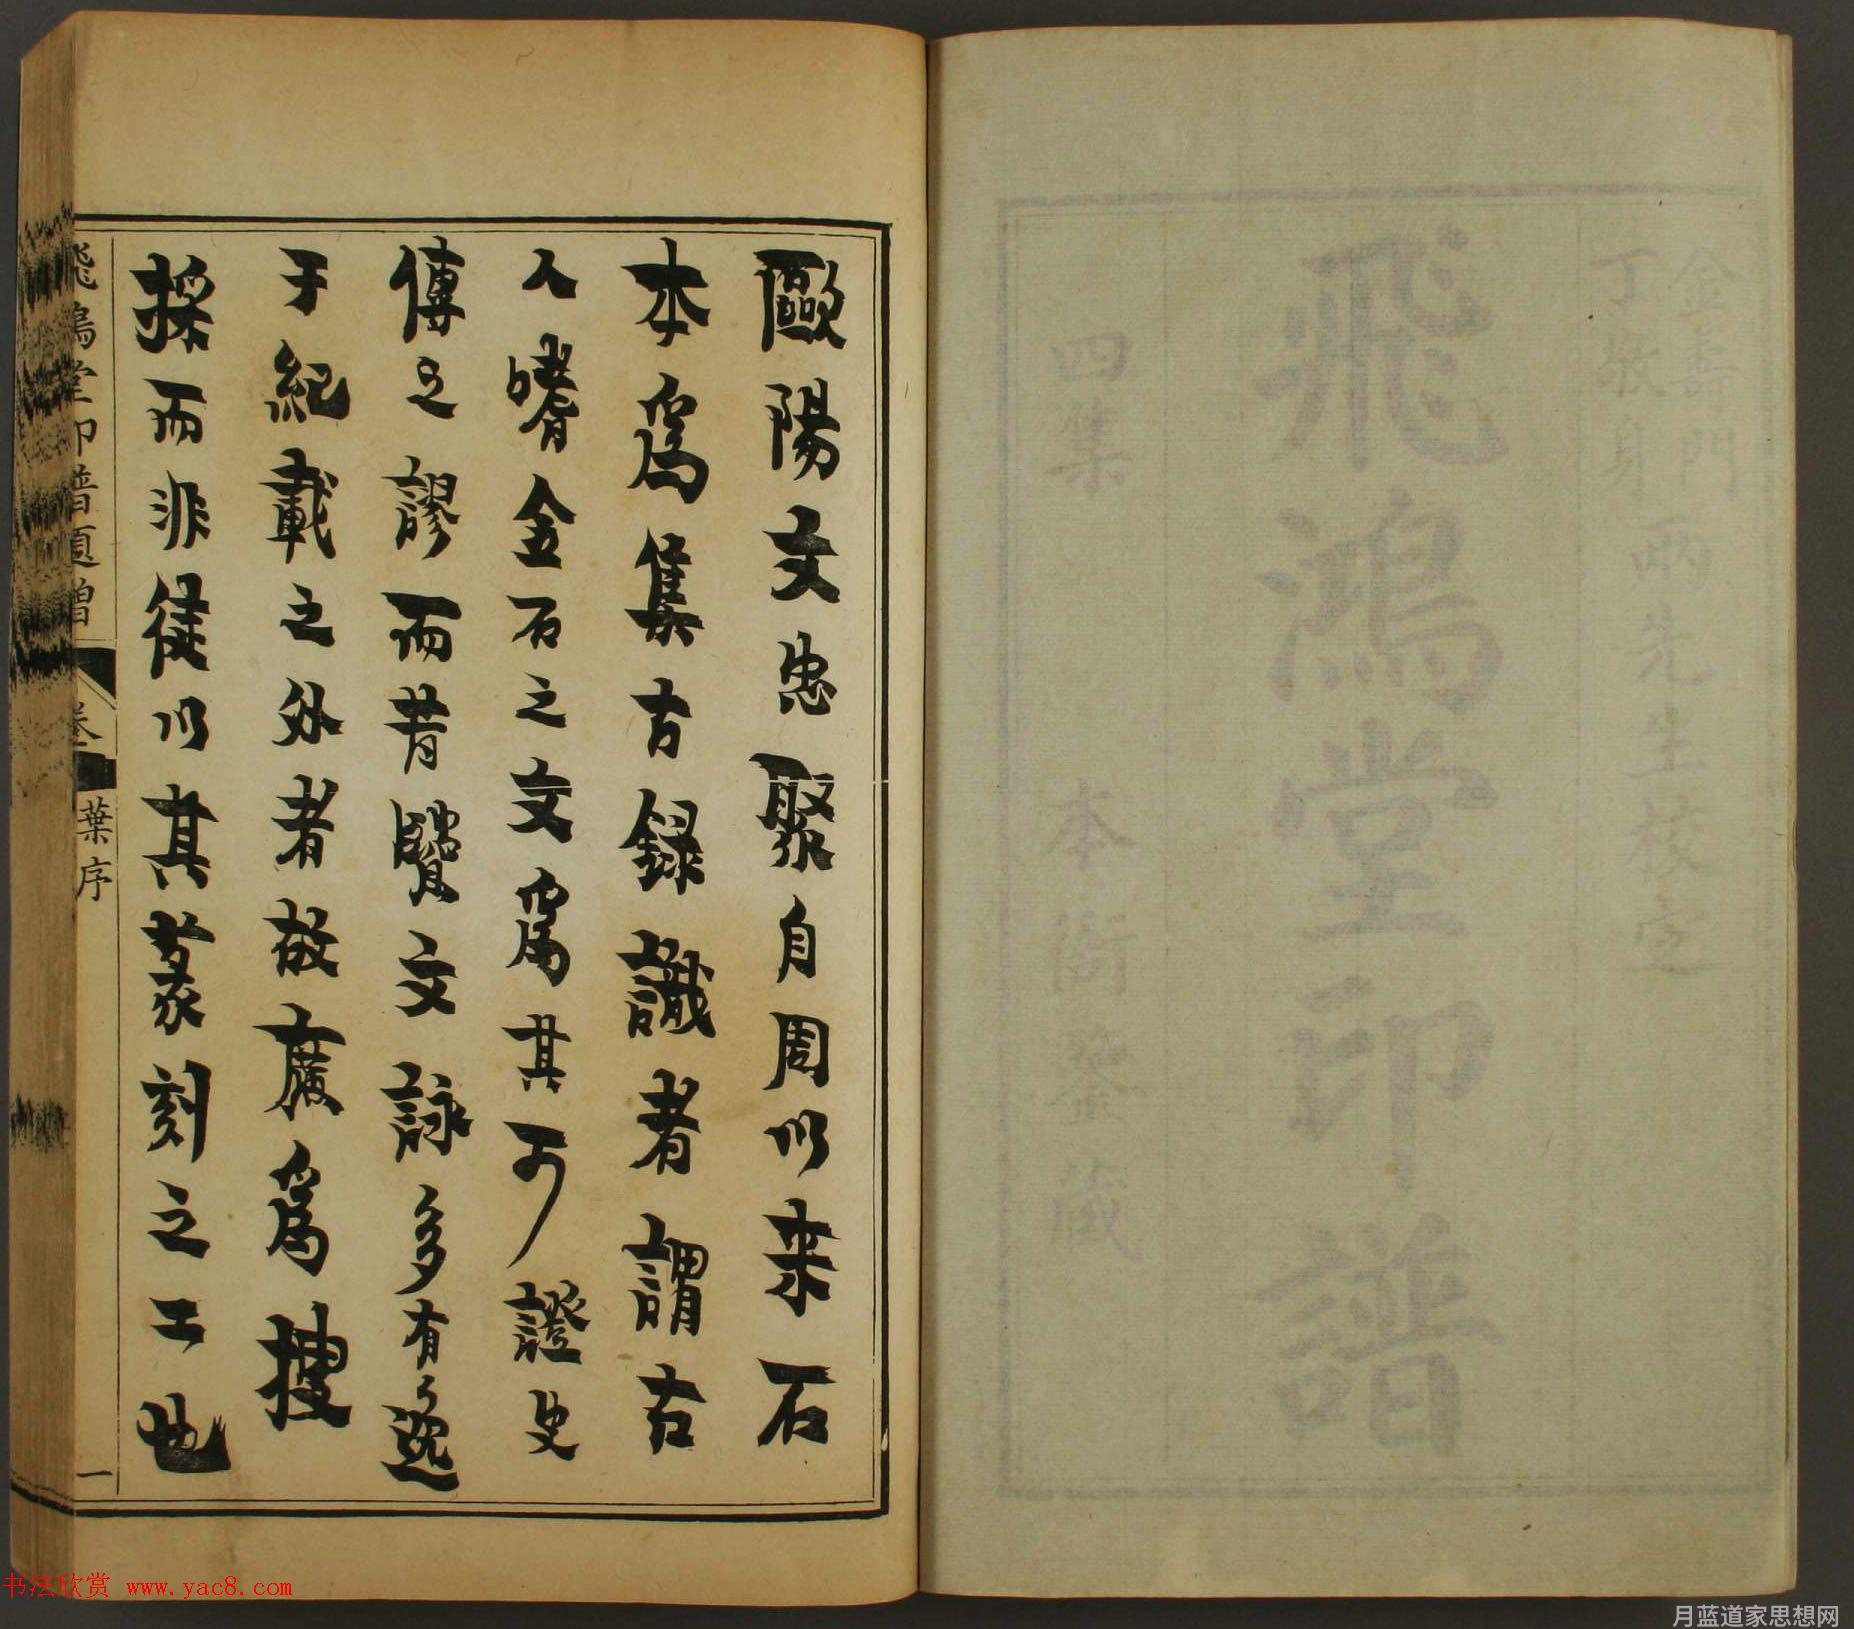 金壽門
丁敬身
兩先生校定
飛鴻堂印譜
四集 本衙藏
歐陽文忠聚自周以来石
本爲集古録識者謂古
人嗜金石之文爲其可證史
傳之謬而昔賢文詠多有逸
于紀載之外者故廣爲搜
採而非徒以其篆刻之工也
飛鴻堂印譜題贈
卷
葉序
一
书法欣赏 www.yac8.com
月蓝道家思想网